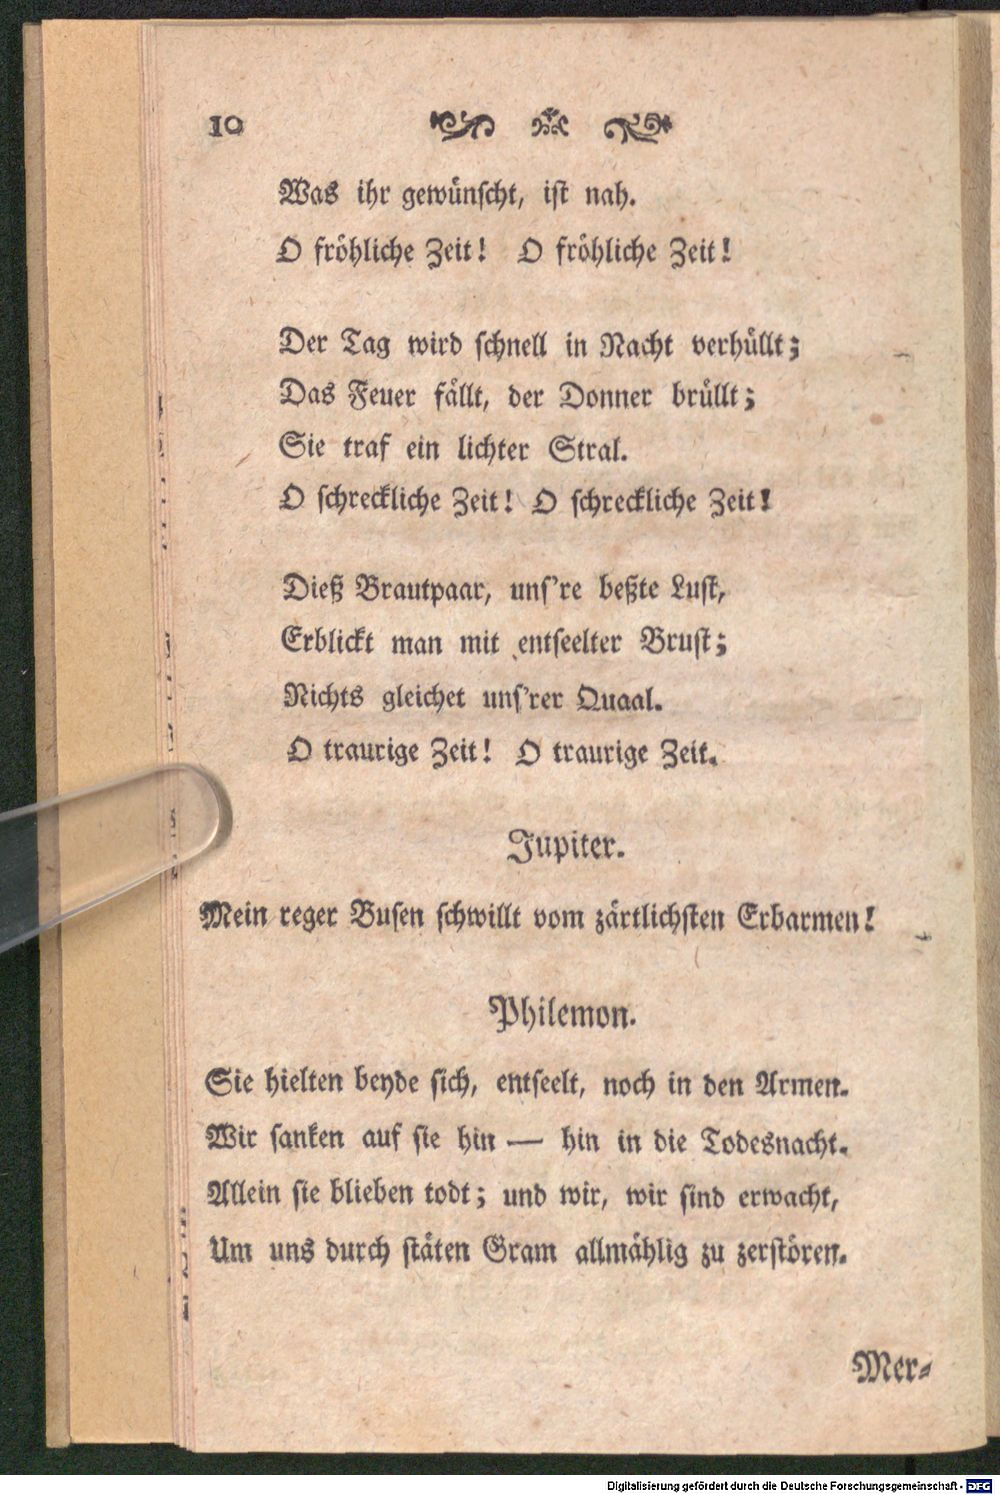 10
Was ihr gewünscht, ist nah.
O fröhliche Zeit! O fröhliche Zeit!
Der Tag wird schnell in Nacht verhüllt;
Das Feuer fällt, der Donner brüllt;
Sie traf ein lichter Stral.
O schreckliche Zeit! O schreckliche Zeit!
Dieß Brautpaar, uns're beßte Lust,
Erblickt man mit entseelter Brust;
Nichts gleichet uns'rer Quaal.
O traurige Zeit! O traurige Zeit.
Jupiter.
Mein reger Busen schwillt vom zärtlichsten Erbarmen!
Philemon.
Sie hielten beyde sich, entseelt, noch in den Armen.
Wir sanken auf sie hin — hin in die Todesnacht.
Allein sie blieben todt; und wir, wir sind erwacht,
Um uns durch stäten Gram allmählig zu zerstören.
Mer-
Digitalisierung gefördert durch die Deutsche Forschungsgemeinschaft - DFG